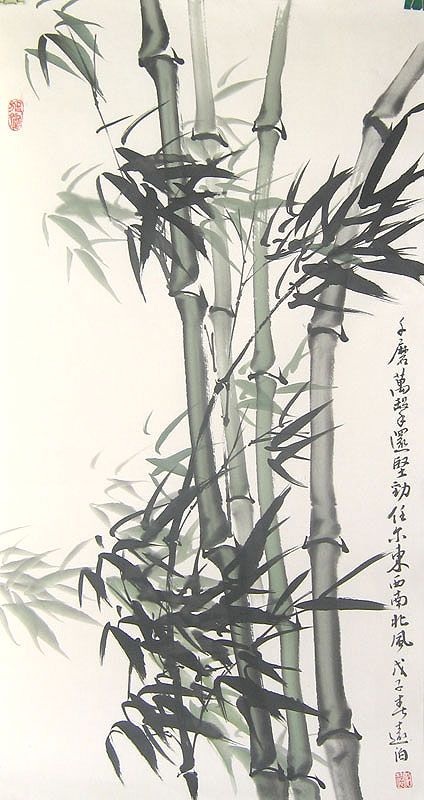 千磨萬擊還堅勁任尔東西南北風戊子春遠泊